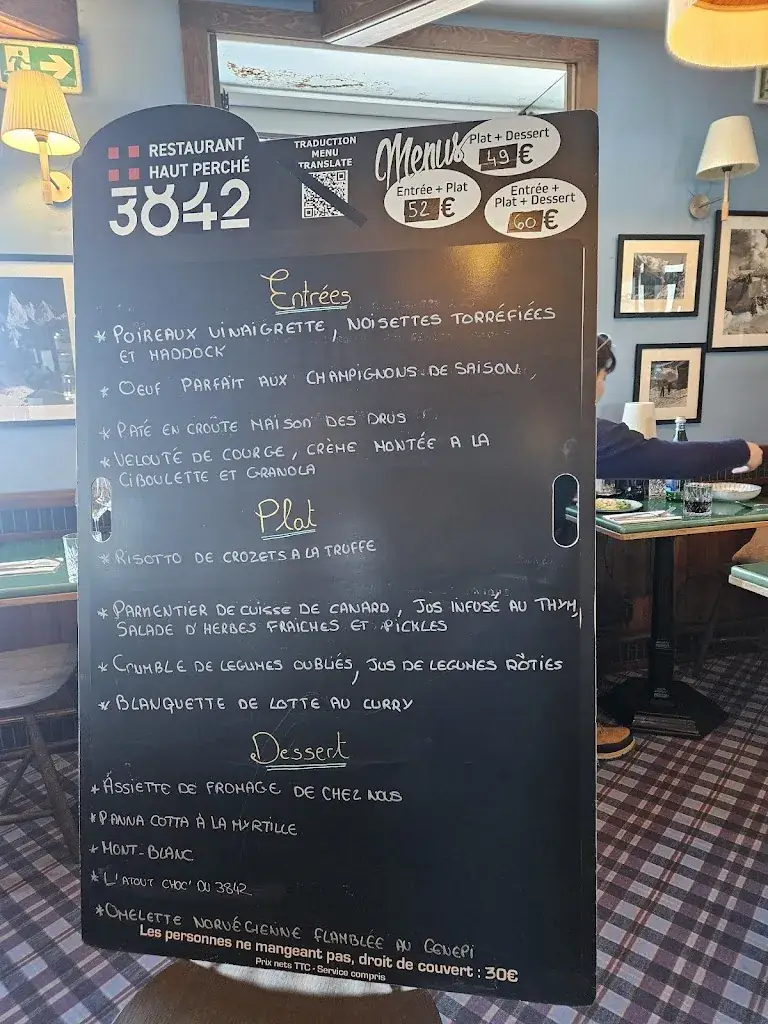 RESTAURANT
HAUT PERCHÉ
3842
TRADUCTION
MENU
TRANSLATE
Menus
Plat + Dessert
49 €
Entrée + Plat
52 €
Entrée +
Plat + Dessert
60 €
Entrées
* POIREAUX VINAIGRETTE, NOISETTES TORRÉFIÉES
ET HADDOCK
* OEUF PARFAIT AUX CHAMPIGNONS DE SAISON
* PATÉ EN CROÛTE MAISON DES DRUS
* VELOUTÉ DE COURGE, CRÈME MONTÉE A LA
CIBOULETTE ET GRANOLA
Plat
* RISOTTO DE CROZETS A LA TRUFFE
* PARMENTIER DE CUISSE DE CANARD, JUS INFUSÉ AU THYM,
SALADE D'HERBES FRAICHES ET PICKLES
* CRUMBLE DE LEGUMES OUBLIÉS, JUS DE LEGUMES RÔTIES
* BLANQUETTE DE LOTTE AU CURRY
Dessert
* ASSIETTE DE FROMAGE DE CHEZ NOUS
* PANNA COTTA À LA MYRTILLE
* MONT-BLANC
* L'ATOUT CHOC' DU 3842
* OMELETTE NORVÉGIENNE FLAMBLÉE AU GENEPI
Les personnes ne mangeant pas, droit de couvert : 30€
Prix nets TTC - Service compris